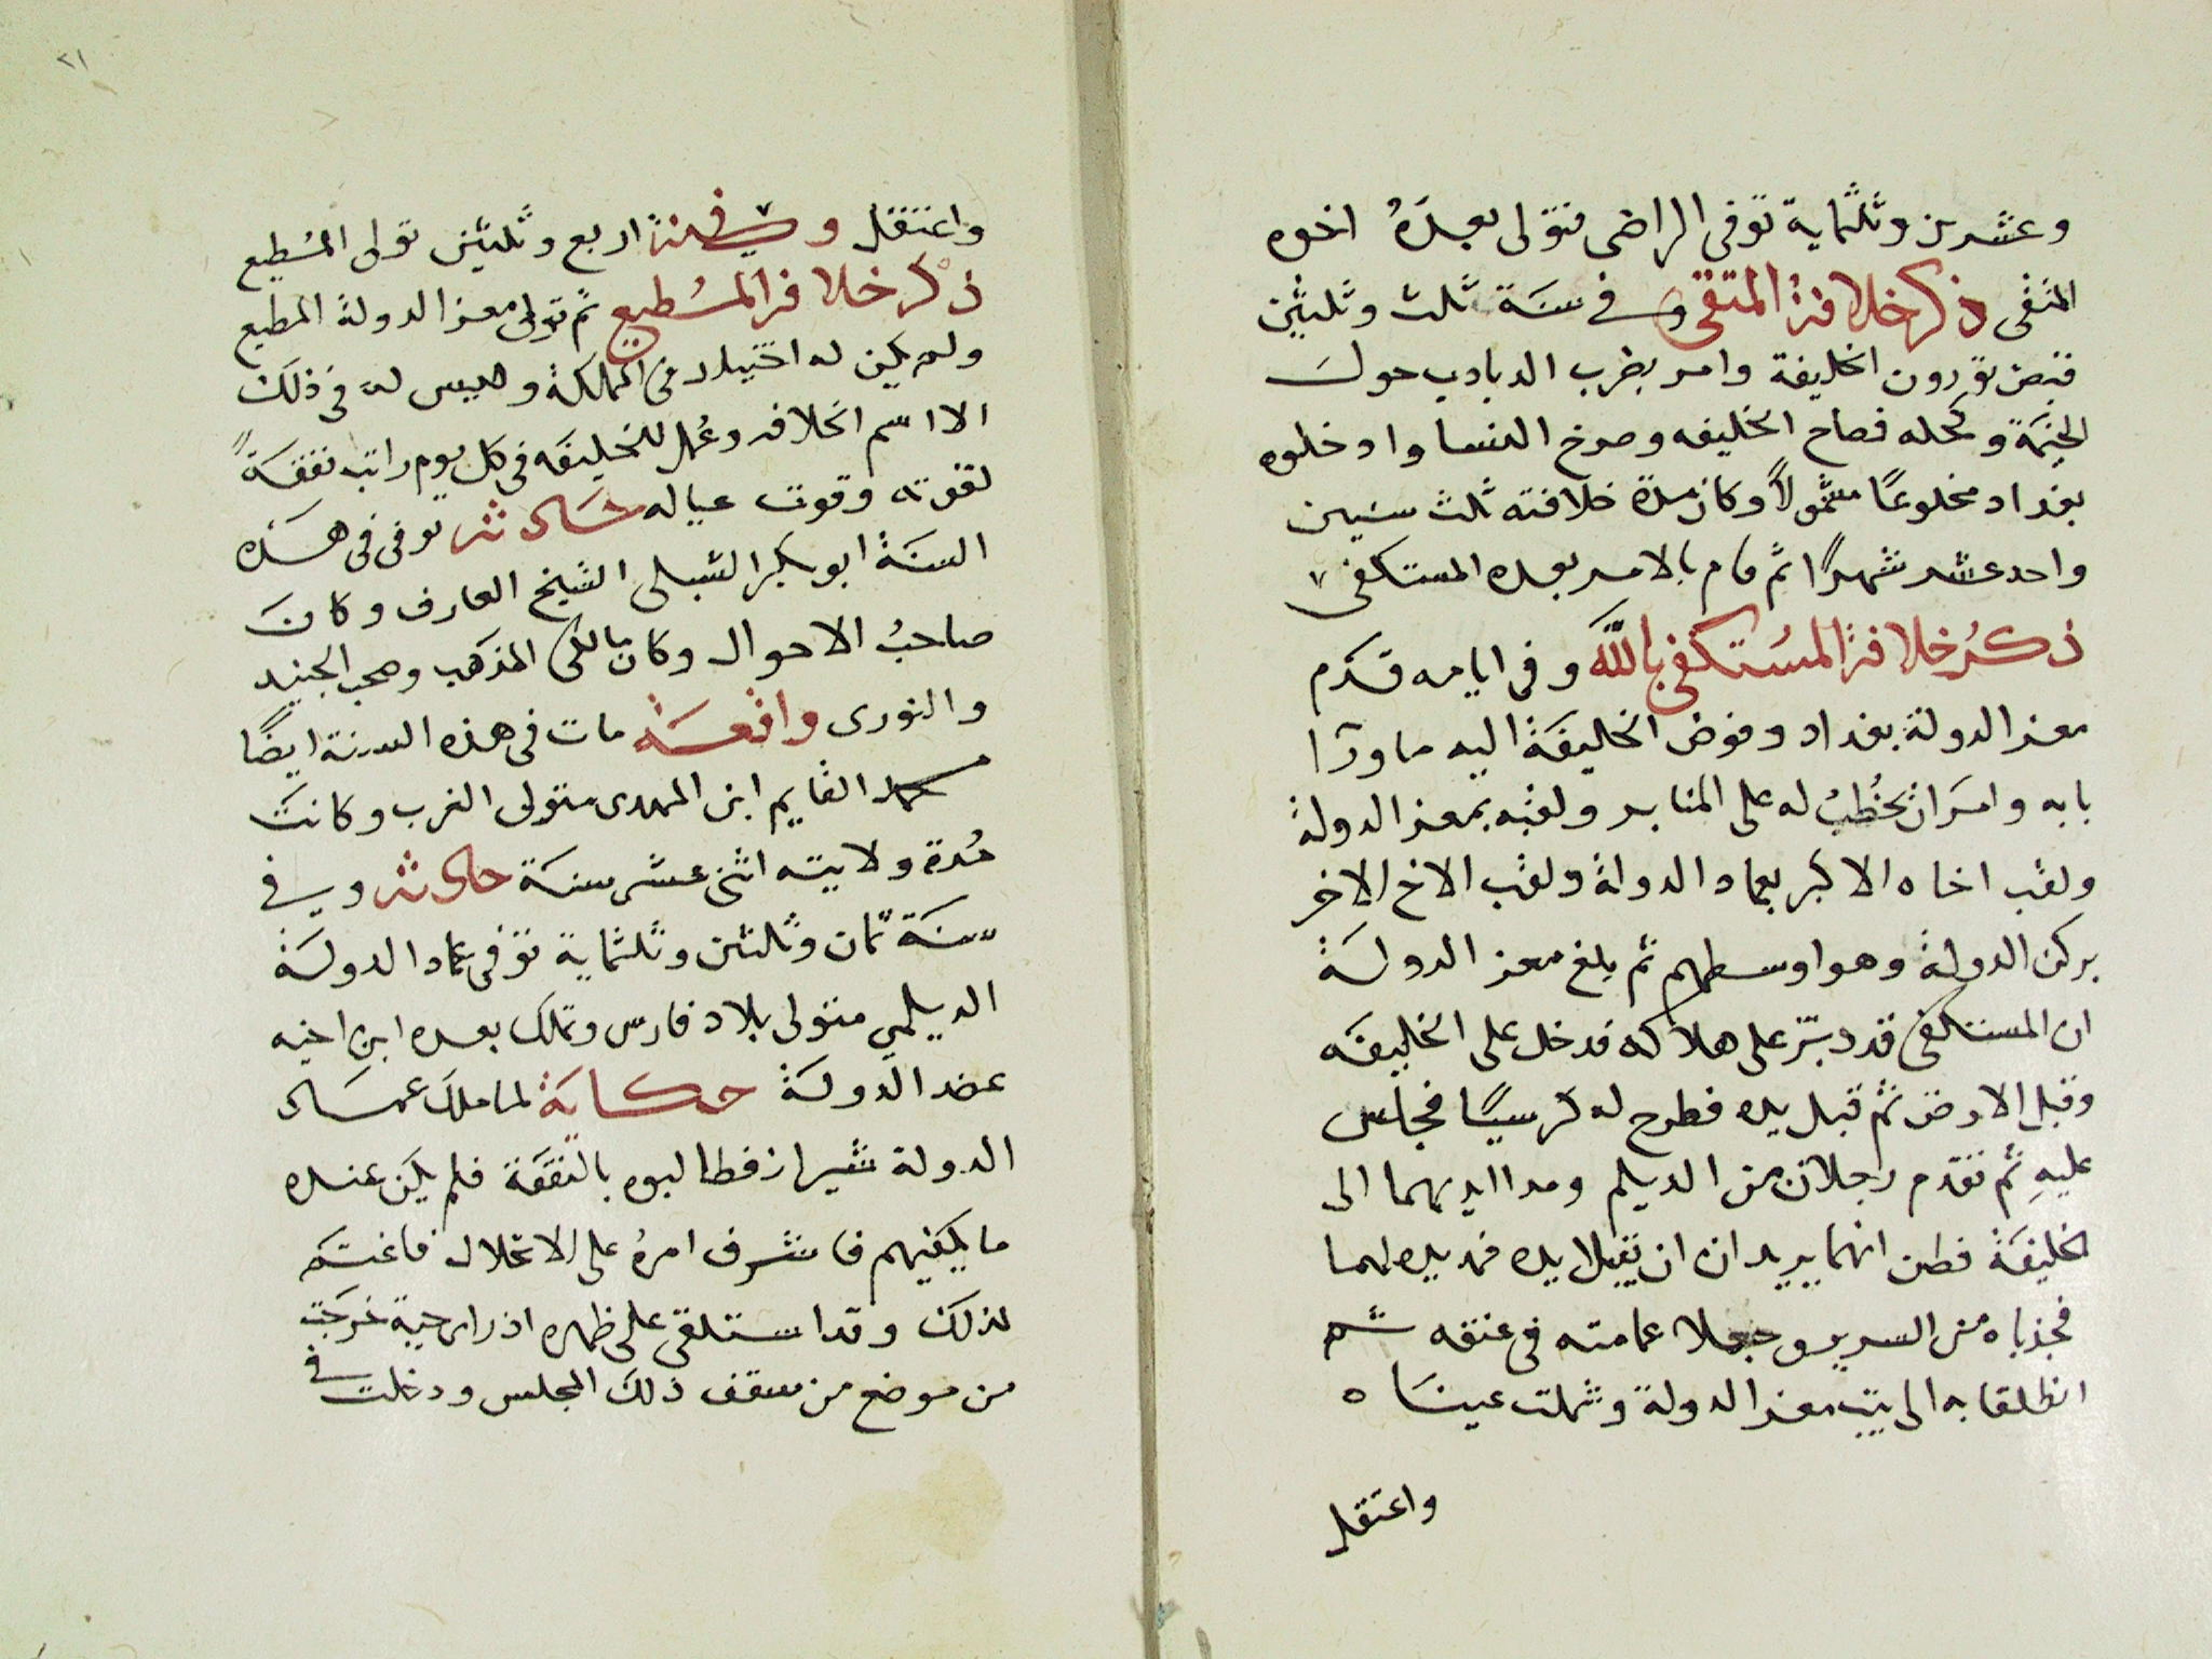 وعشرين وثلثماية توفى الراضى فتولى بعدَهُ اخوه
المتقى ذكر خلافة المتقى وفى سنَة ثلث وثلثين
قبض تورون الخليفة وامر بضرب الدبادب حول
الخيمَة وكحله فصاح الخليفه وصرخ النسا وادخلوه
بغداد مخلوعًا مثمولاً وكان مدة خلافته ثلث سنين
واحد عشر شهرًا ثم قام بالامر بعده المستكفى
ذكرُ خلافة المسُتكفى بالله وفى ايامه قدَم
معز الدولة بغداد وفوض الخليفَة اليه ما ورآ
بابه وامَر ان يخُطبُ له على المنابر ولقبه بمعز الدولة
ولقب اخاه الاكبر بعماد الدولة ولقب الاخ الاخر
بركن الدولة وهو اوسطهم ثم بلغ معز الدولَة
ان المستكفى قد دبّر على هلاكه فدخل على الخليفَه
وقبل الارض ثم قبل يده فطرح له كرسيًا فجلس
عليهِ ثم تقدم رجلان من الديلم ومدا ايديهما الى
الخليفَة فظن انهما يريدان ان يقبلا يده فمد يده لهما
فجذباه من السرير وجعلا عمامته فى عنقه ثم
انطلقا به الى بيت معز الدولة وثملت عينَاه
واعتقل
٢١
واعتقل وفى سنة اربع وثلثين تولى المسُطيع
ذكر خلافة المسُطيع ثم تولى معز الدولة المطيع
ولم يكن له اختيار فى المملكة وليس له فى ذلكَ
الا اسم الخلافه وعُمل للخليفَه فى كل يوم راتب نفقَةً
لقوته وقوت عياله حَادثة توفى فى هَذه
السنَة ابو بكر الشبلى الشيخ العارف وكانَ
صاحبُ الاحوال وكان مالكى المذهَب وصحب الجنيد
والنورى واقعَة مات فى هذه السنة ايضًا
محمد القايم ابن المهدى متولى الغرب وكانتَ
مُدة ولايته اثنى عشر سنَة حادثة وفى
سنَة ثمان وثلثين وثلثماية توفى عماد الدولَة
الديلمي متولى بلاد فارس وتملك بعده ابن اخيه
عضد الدولَة حكايَة لما ملَك عمَاد
الدولة شيراز فطالبوه بالنفقَة فلم يكَن عنده
ما يكفيهم فاشرف امرهُ على الانحلال فاغتم
لذلكَ وقد استلقى على ظهره اذ راى حية خرجَت
من موضع من سقف ذلكَ المجلس ودخلت فى